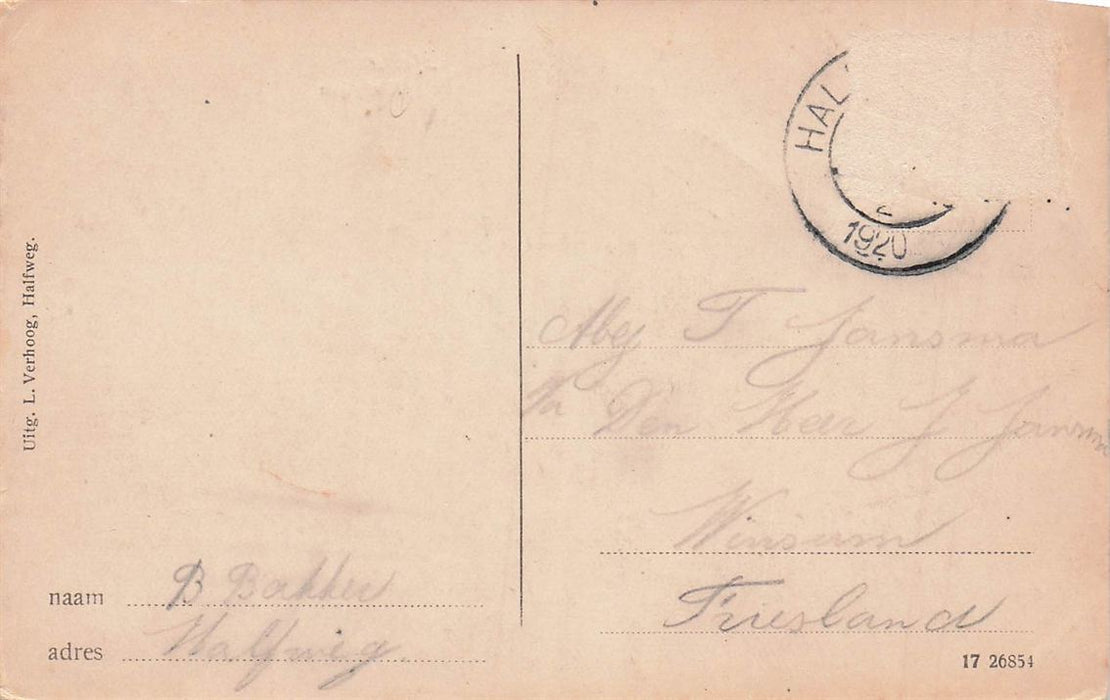 Uitg. L. Verhoog, Halfweg.
HAL
2
1920
Mej T Jansma
Den Heer J Jansma
Winsum
Friesland
naam B Bakker
adres Halfweg.
17 26854